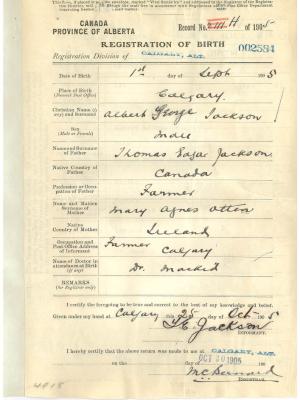 CANADA
PROVINCE OF ALBERTA
Record No. H of 1905
REGISTRATION OF BIRTH
002584
Registration Division of CALGARY, ALT.
Date of Birth 1st day of Sept 1905
Place of Birth
(Nearest Post Office) Calgary.
Christian Name (if any) and Surname Albert George Jackson
Sex
(Male or Female) male
Name and Surname of Father Thomas Edgar Jackson
Native Country of Father Canada
Profession or Occupation of Father Farmer
Name and Maiden Surname of Mother Mary Agnes
Native Country of Mother Ireland
Occupation and Post Office Address of Informant Farmer Calgary
Name of Doctor in attendance at Birth (if any) Dr.
REMARKS
(for Registrar only)
I certify the foregoing to be true and correct to the best of my knowledge and belief.
Given under my hand at Calgary 25 day of Oct 1905
Jackson
INFORMANT.
I hereby certify that the above return was made to me at CALGARY, ALT.
on the OCT 30 1905 day of
REGISTRAR.